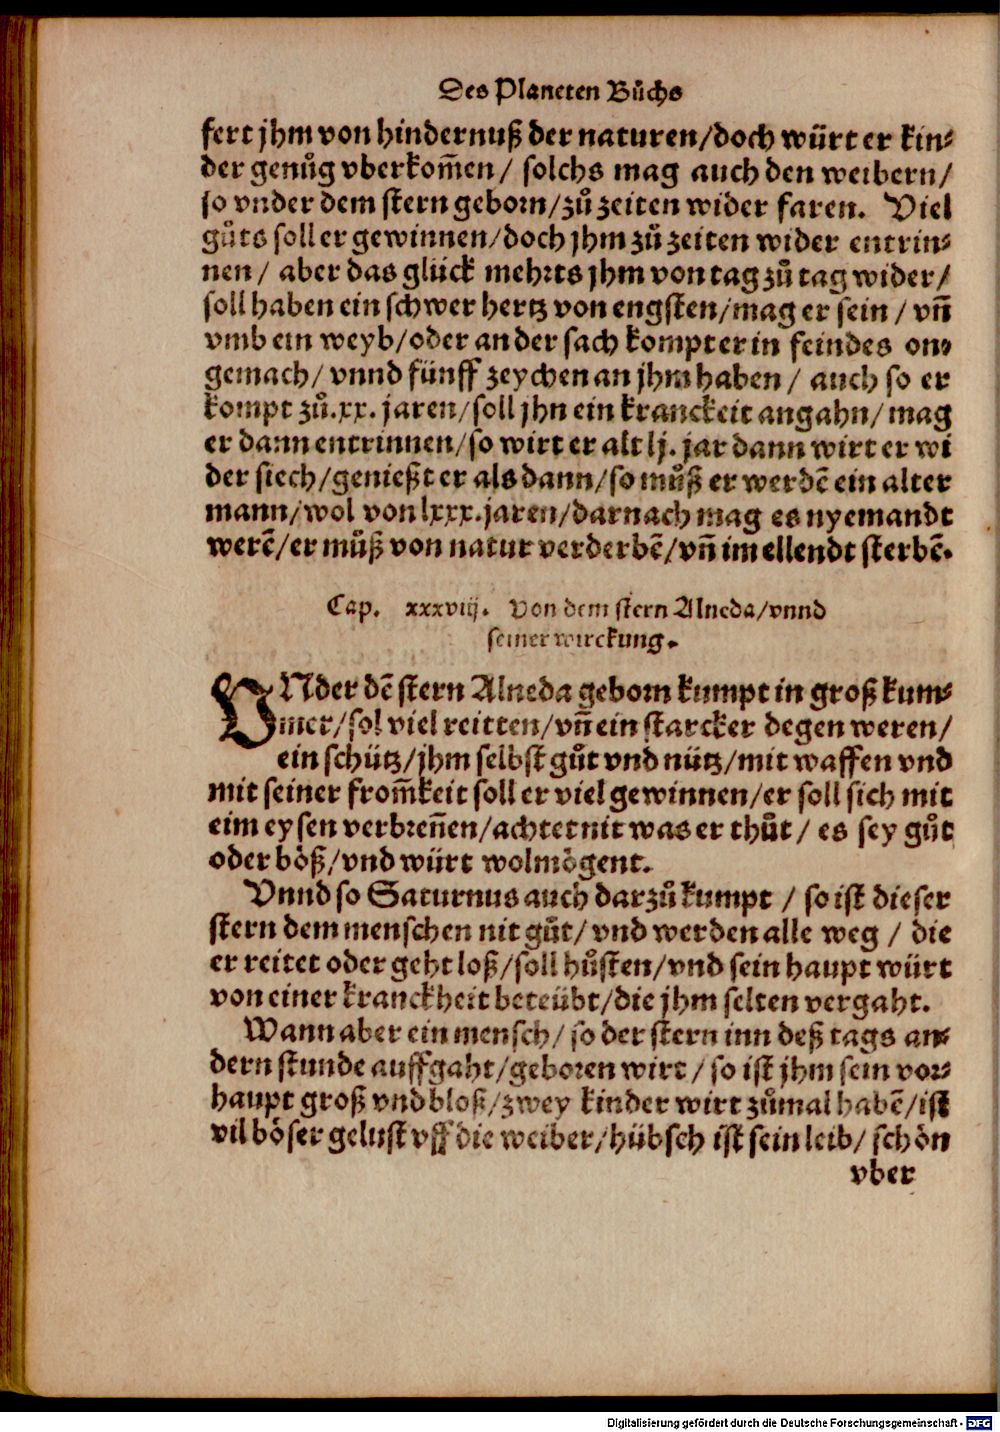 Des Planeten Bůchs
fert jhm von hindernuß der naturen/doch würt er kin⸗
der genůg vberkom̃en/ solchs mag auch den weibern/
so vnder dem stern geborn/zů zeiten wider faren. Viel
gůts soll er gewinnen/doch jhm zů zeiten wider entrin⸗
nen/ aber das glück mehrts jhm von tag zů tag wider/
soll haben ein schwer hertz von engsten/mag er sein/ vñ
vmb ein weyb/oder an der sach kompt er in feindes on⸗
gemach/ vnnd fünff zeychen an jhm haben/ auch so er
kompt zů.xx. jaren/soll jhn ein kranckeit angahn/mag
er dann entrinnen/so wirt er alt lj. jar dann wirt er wi
der siech/genießt er als dann/so můß er werdẽ ein alter
mann/wol von lxxx.jaren/darnach mag es nyemandt
werẽ/er můß von natur verderbẽ/vñ im ellendt sterbẽ.
Cap. xxxviij. Von dem stern Alneda/vnnd
seiner wirckung.
VNder dẽ stern Alneda geborn kumpt in groß kum⸗
mer/sol viel reitten/vñ ein starcker degen weren/
ein schütz/jhm selbst gůt vnd nütz/mit waffen vnd
mit seiner from̃keit soll er viel gewinnen/er soll sich mit
eim eysen verbreñen/achtet nit was er thůt/ es sey gůt
oder böß/vnd würt wolmögent.
Vnnd so Saturnus auch darzů kumpt / so ist dieser
stern dem menschen nit gůt/ vnd werden alle weg / die
er reitet oder geht loß/soll hůsten/vnd sein haupt würt
von einer kranckheit beteübt/die jhm selten vergaht.
Wann aber ein mensch/ so der stern inn deß tags an⸗
dern stunde auffgaht/geboren wirt/ so ist jhm sein vor⸗
haupt groß vnd bloß/zwey kinder wirt zůmal habẽ/ist
vil böser gelust vff die weiber/hübsch ist sein leib/ schön
vber
Digitalisierung gefördert durch die Deutsche Forschungsgemeinschaft - DFG